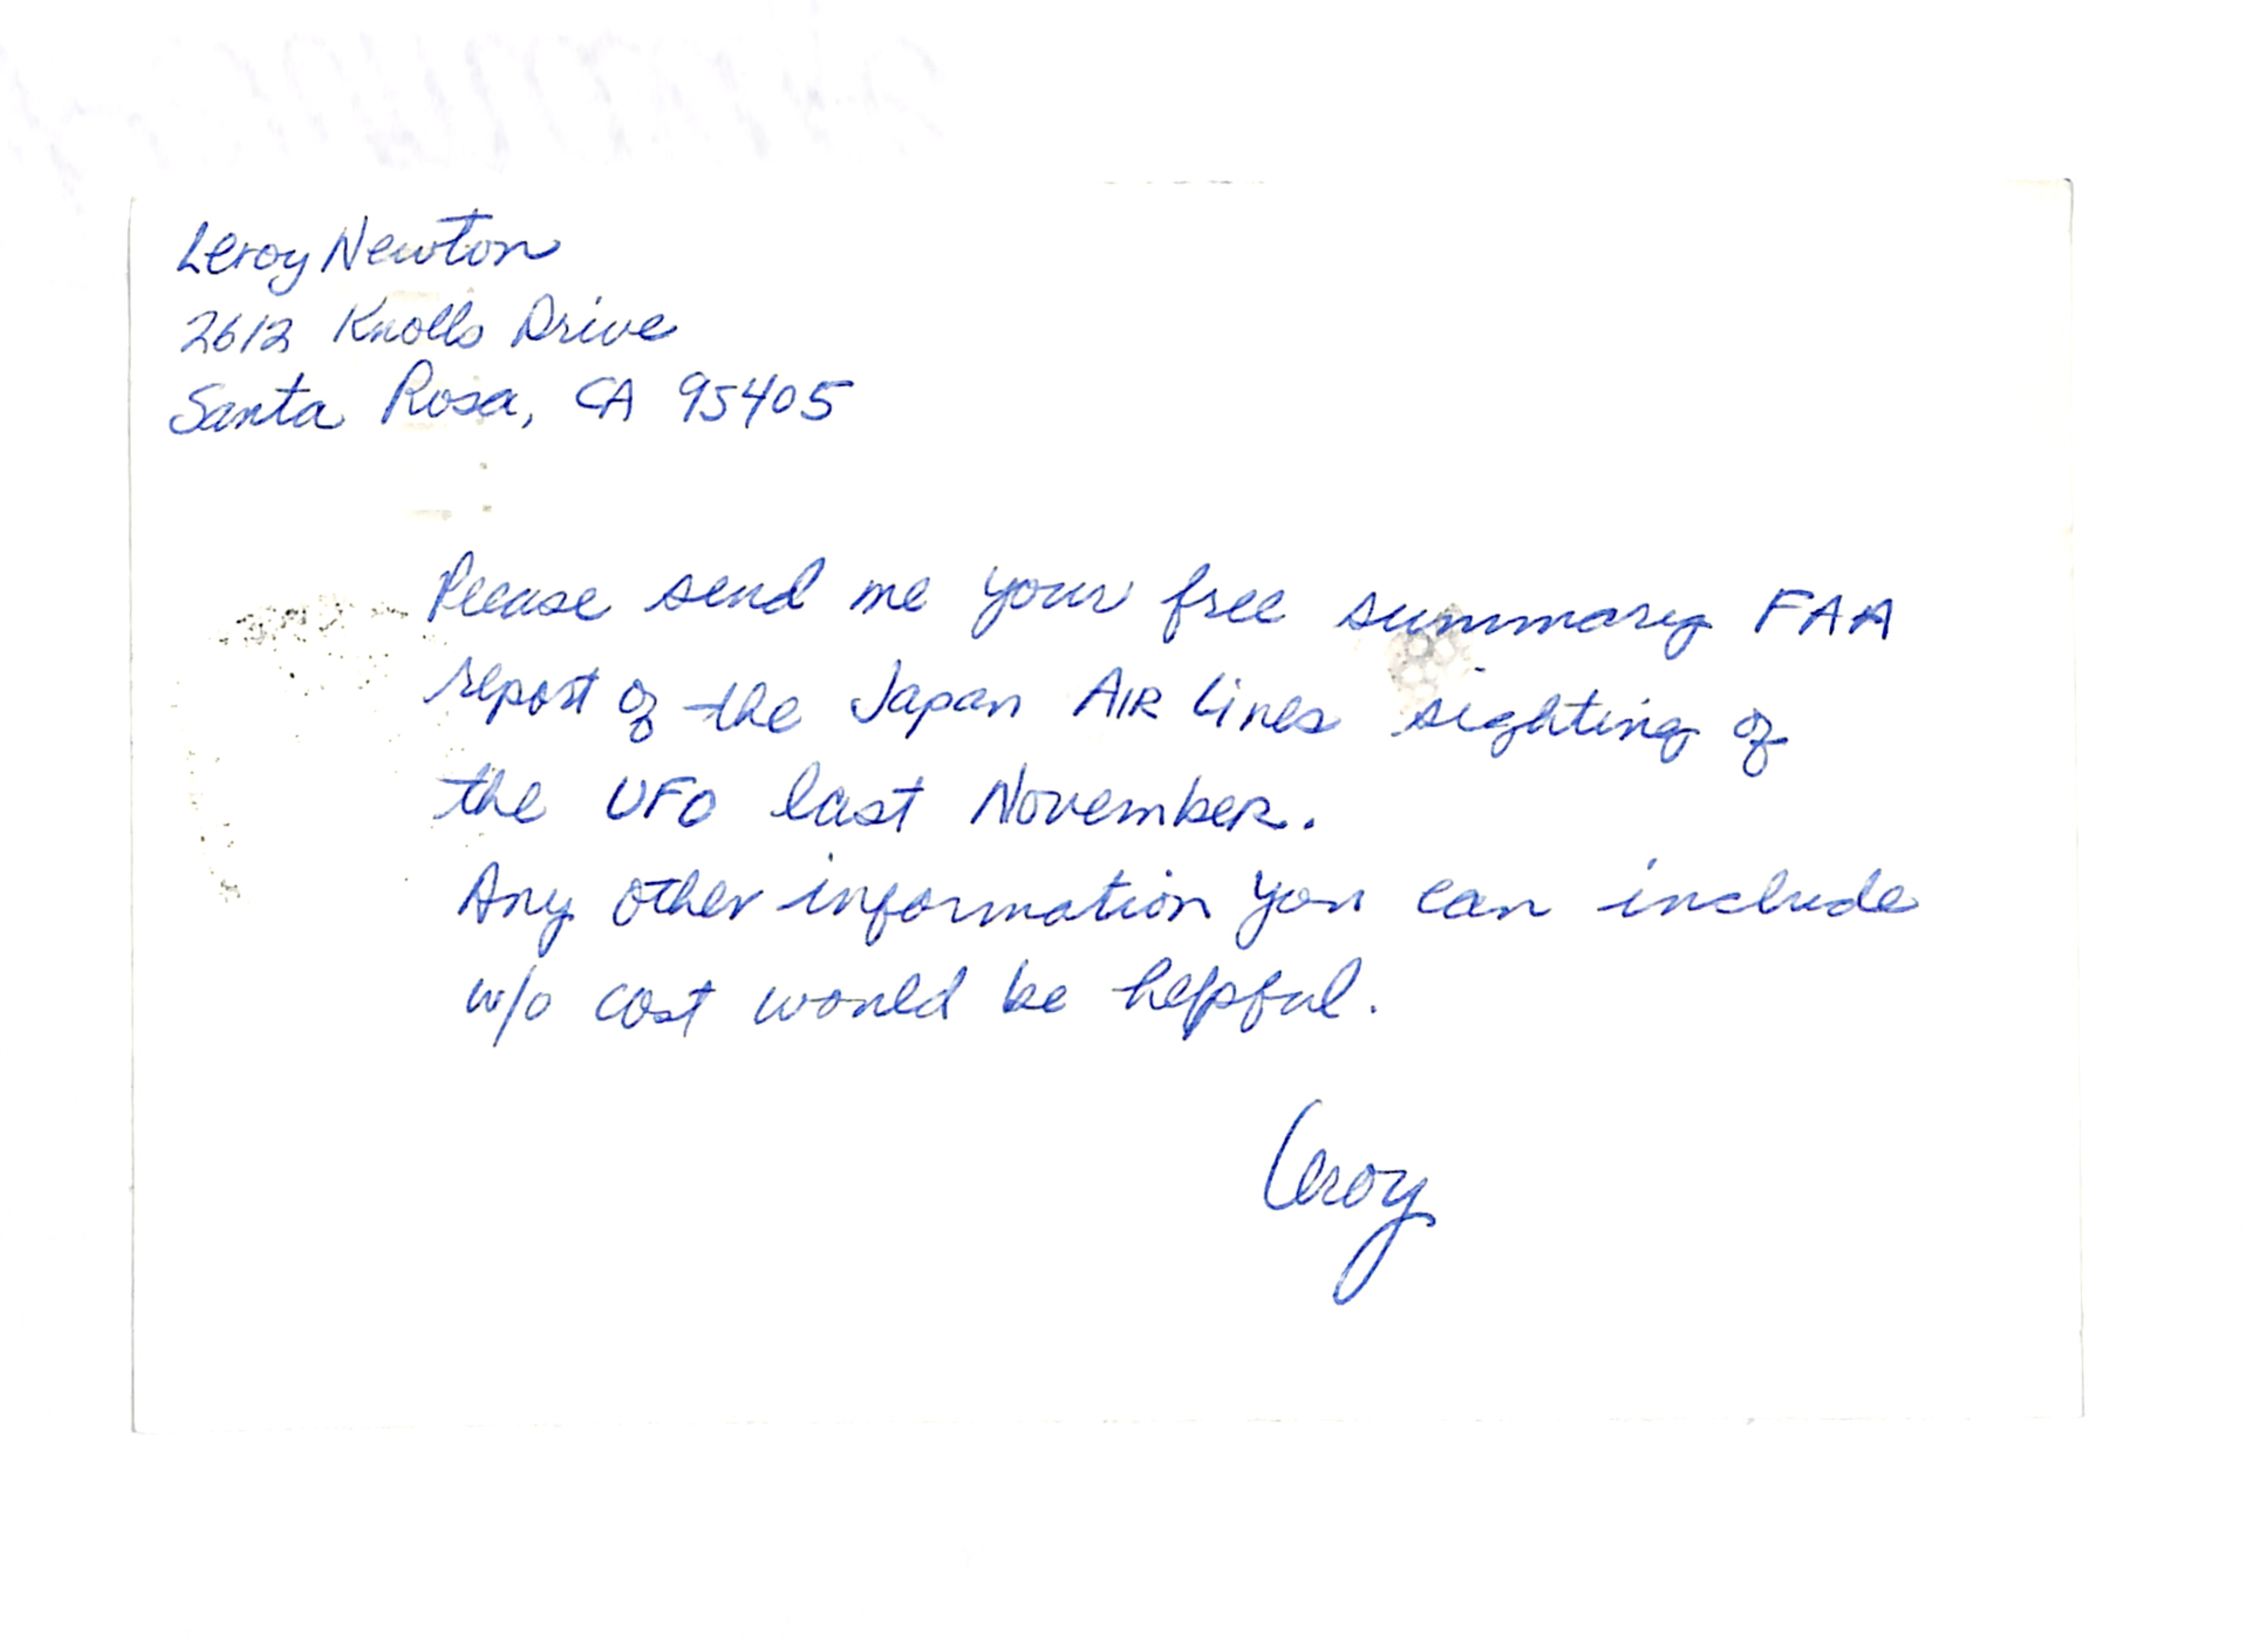 Leroy Newton
2612 Knolls Drive
Santa Rosa, CA 95405
Please send me your free summary FAA
report of the Japan AIR Lines sighting of
the UFO last November.
Any other information you can include
w/o cost would be helpful.
Leroy